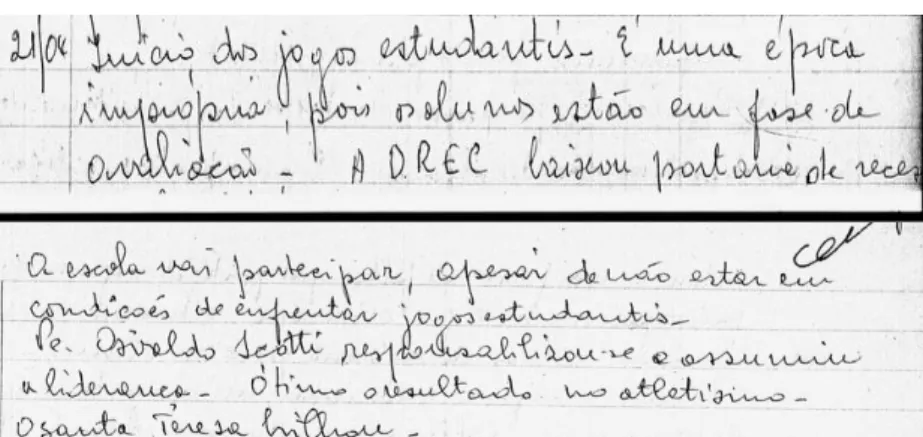 21/04 Início dos jogos estudantis - É uma época
imprópria, pois os alunos estão em fase de
avaliação - A DREC baixou portaria de reces
A escola vai participar, apesar de não estar em
condições de enfrentar jogos estudantis -
Pe. Osvaldo Scotti responsabilizou-se e assumiu
a liderança - Ótimo o resultado no atletismo -
O Santa Teresa brilhou -